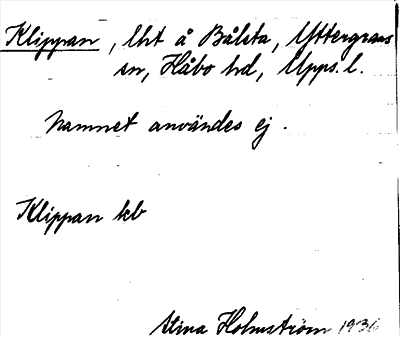 Klippan, lht å Bålsta, Yttergrans
sn, Håbo hd, Upps. l.
Namnet användes ej.
Klippan kb
Stina Holmström 1936